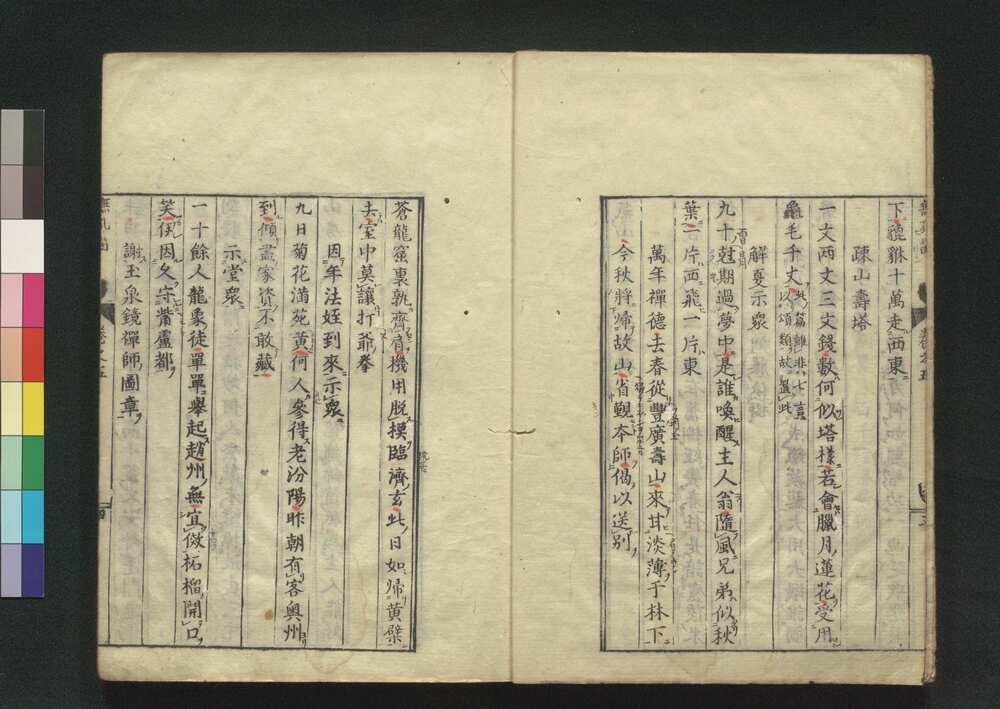 下貔貅十萬走西東
疎山壽塔
一文兩文三文錢數何似塔樣若會臘月蓮花受用
龜毛千丈此篇雖非七言以頌類故置此
解夏示衆
九十尅期過夢中是誰喚醒主人翁隨風兄弟似秋
葉一片西飛一片東
萬年禪德去春從豐廣壽山來甘淡薄于林下
今秋將歸故山省覲本師偈以送別
蒼龍窟裏孰齊肩機用脱摸臨濟玄此日如歸黄檗
去室中莫讓打爺拳
因年法姪到來示衆
九日菊花滿苑黄何人參得老汾陽昨朝有客奥州
到傾盡家資不敢藏
示堂衆
一十餘人龍象徒單單擧起趙州無宜倣柘榴開口
笑休因久守觜盧都
謝玉泉鏡禪師圖章